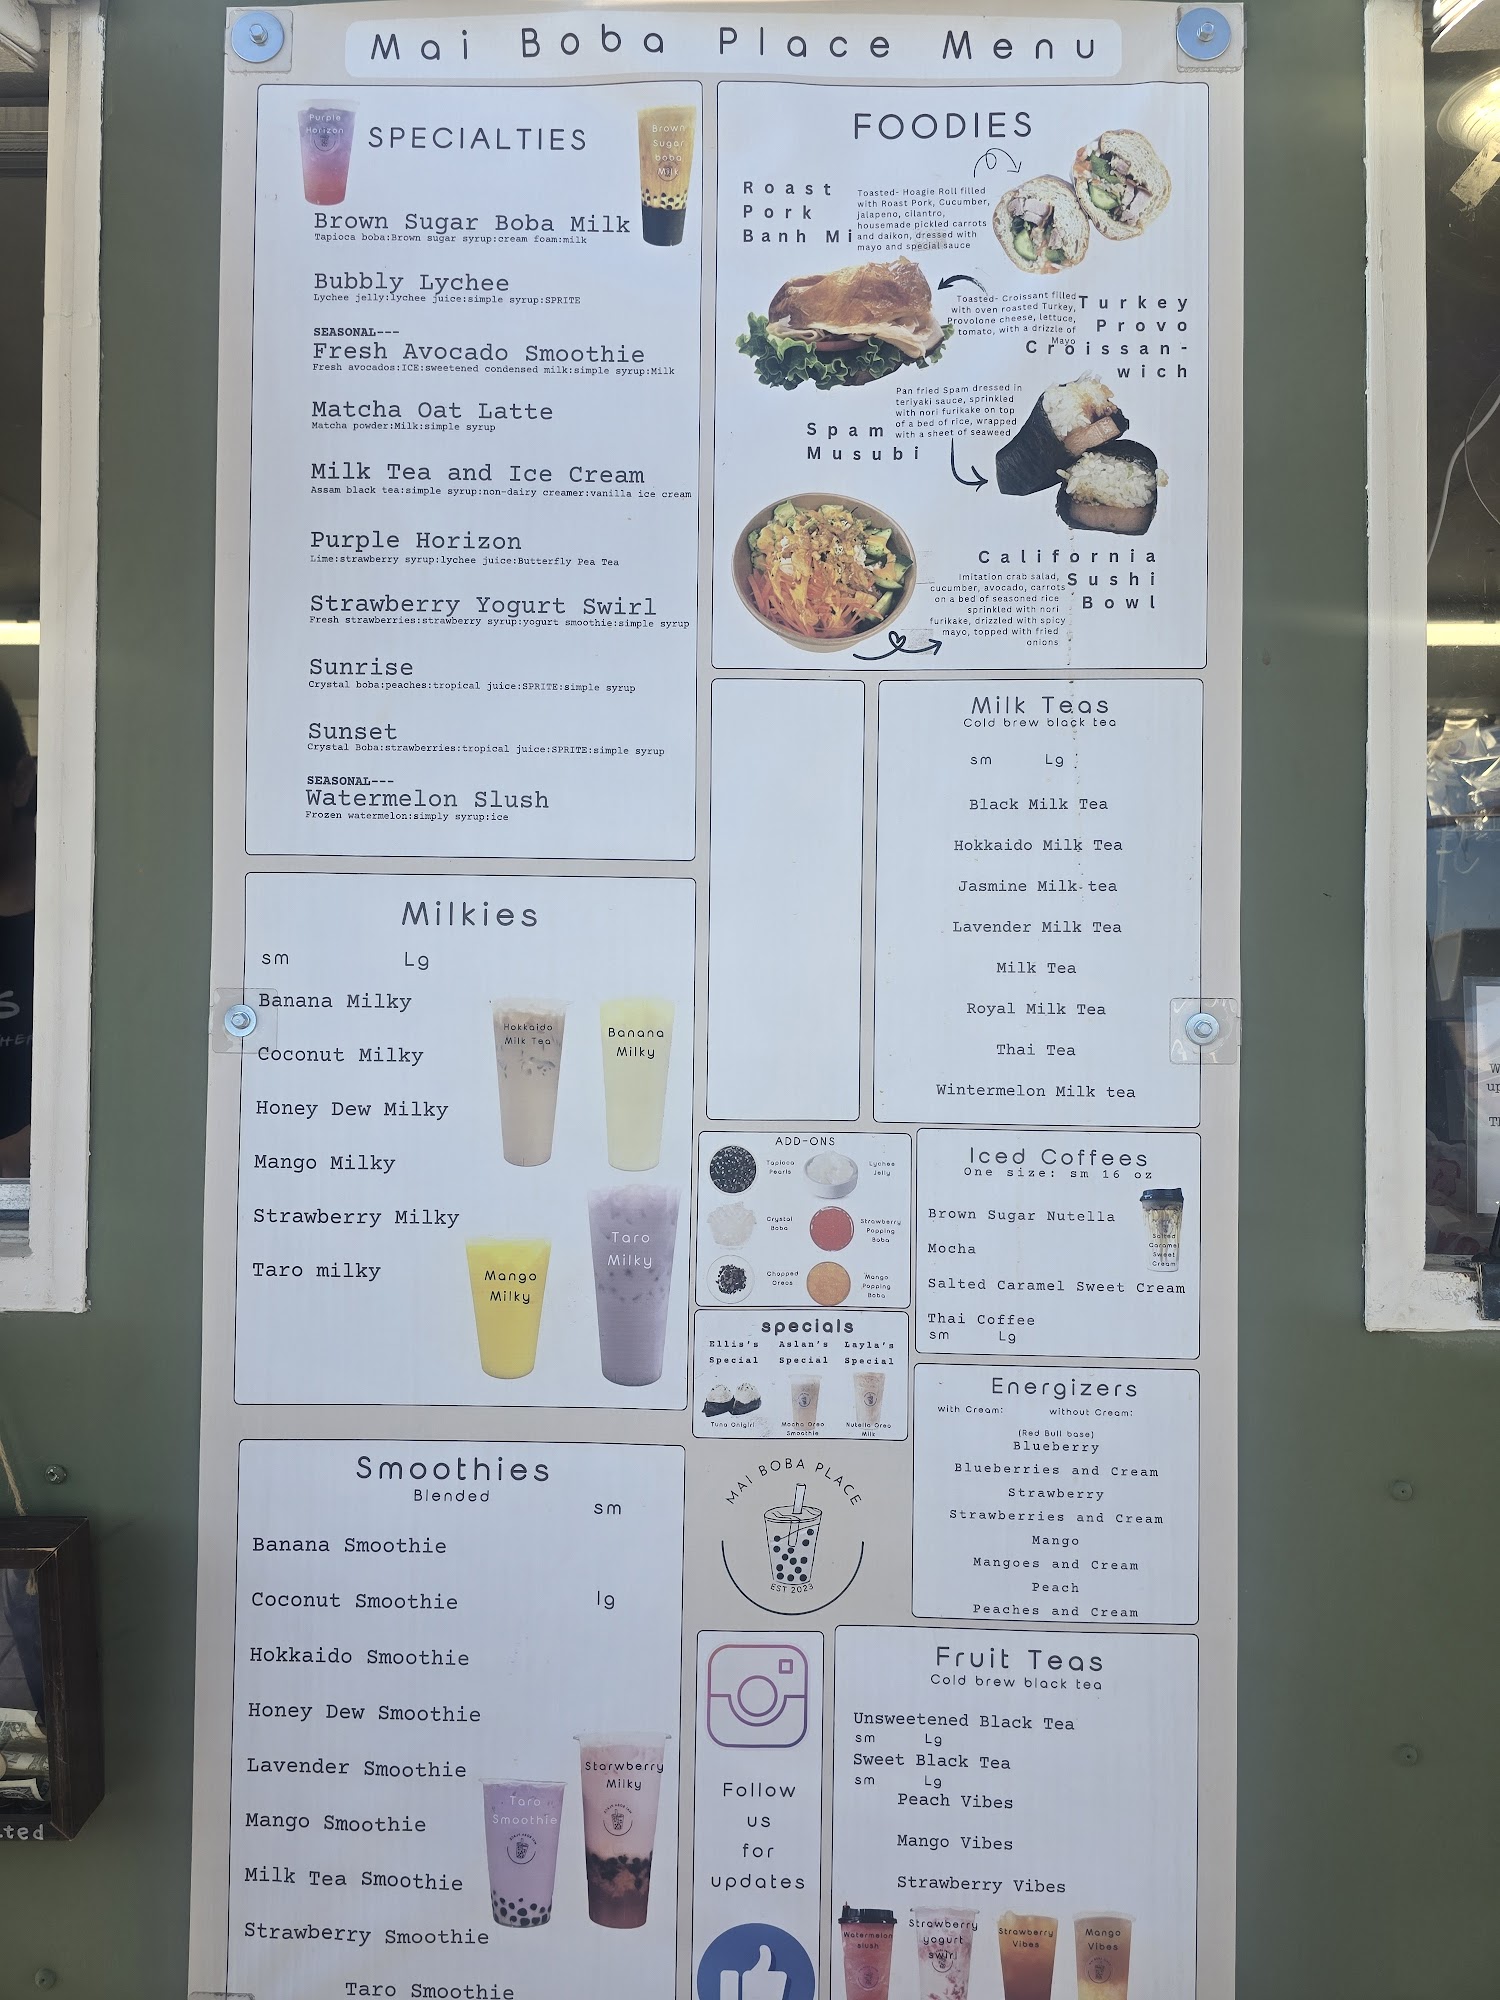 Mai Boba Place Menu
SPECIALTIES
Purple
Horizon
Brown
Sugar
boba
Milk
Brown Sugar Boba Milk
Tapioca boba:Brown sugar syrup:cream foam:milk
Bubbly Lychee
Lychee jelly:lychee juice:simple syrup:SPRITE
SEASONAL---
Fresh Avocado Smoothie
Fresh avocados:ICE:sweetened condensed milk:simple syrup:Milk
Matcha Oat Latte
Matcha powder:Milk:simple syrup
Milk Tea and Ice Cream
Assam black tea:simple syrup:non-dairy creamer:vanilla ice cream
Purple Horizon
Lime:strawberry syrup:lychee juice:Butterfly Pea Tea
Strawberry Yogurt Swirl
Fresh strawberries:strawberry syrup:yogurt smoothie:simple syrup
Sunrise
Crystal boba:peaches:tropical juice:SPRITE:simple syrup
Sunset
Crystal Boba:strawberries:tropical juice:SPRITE:simple syrup
SEASONAL---
Watermelon Slush
Frozen watermelon:simply syrup:ice
FOODIES
Roast
Pork
Banh Mi
Toasted- Hoagie Roll filled
with Roast Pork, Cucumber,
jalapeno, cilantro,
housemade pickled carrots
and daikon, dressed with
mayo and special sauce
Toasted- Croissant filled
with oven roasted Turkey,
Provolone cheese, lettuce,
tomato, with a drizzle of
Mayo
Turkey
Provo
Croissan-
wich
Pan fried Spam dressed in
teriyaki sauce, sprinkled
with nori furikake on top
of a bed of rice, wrapped
with a sheet of seaweed
Spam
Musubi
California
Sushi
Bowl
Imitation crab salad,
cucumber, avocado, carrots
on a bed of seasoned rice
sprinkled with nori
furikake, drizzled with spicy
mayo, topped with fried
onions
Milk Teas
Cold brew black tea
sm Lg
Black Milk Tea
Hokkaido Milk Tea
Jasmine Milk tea
Lavender Milk Tea
Milk Tea
Royal Milk Tea
Thai Tea
Wintermelon Milk tea
Milkies
sm Lg
Banana Milky
Coconut Milky
Honey Dew Milky
Mango Milky
Strawberry Milky
Taro milky
Hokkaido
Milk Tea
Banana
Milky
Mango
Milky
Taro
Milky
ADD-ONS
Tapioca
Pearls
Lychee
Jelly
Crystal
Boba
Strawberry
Popping
Boba
Chopped
Oreos
Mango
Popping
Boba
Iced Coffees
One size: sm 16 oz
Brown Sugar Nutella
Mocha
Salted Caramel Sweet Cream
Thai Coffee
sm Lg
Salted
Caramel
Sweet
Cream
specials
Ellis's
Special
Aslan's
Special
Layla's
Special
Tuna Onigiri
Mocha Oreo
Smoothie
Nutella Oreo
Milk
Energizers
with Cream: without Cream:
(Red Bull base)
Blueberry
Blueberries and Cream
Strawberry
Strawberries and Cream
Mango
Mangoes and Cream
Peach
Peaches and Cream
MAI BOBA PLACE
EST 2023
Smoothies
Blended
sm
lg
Banana Smoothie
Coconut Smoothie
Hokkaido Smoothie
Honey Dew Smoothie
Lavender Smoothie
Mango Smoothie
Milk Tea Smoothie
Strawberry Smoothie
Taro Smoothie
Taro
Smoothie
Starwberry
Milky
Follow
us
for
updates
Fruit Teas
Cold brew black tea
Unsweetened Black Tea
sm Lg
Sweet Black Tea
sm Lg
Peach Vibes
Mango Vibes
Strawberry Vibes
Watermelon
slush
Strawberry
yogurt
swirl
Strawberry
Vibes
Mango
Vibes